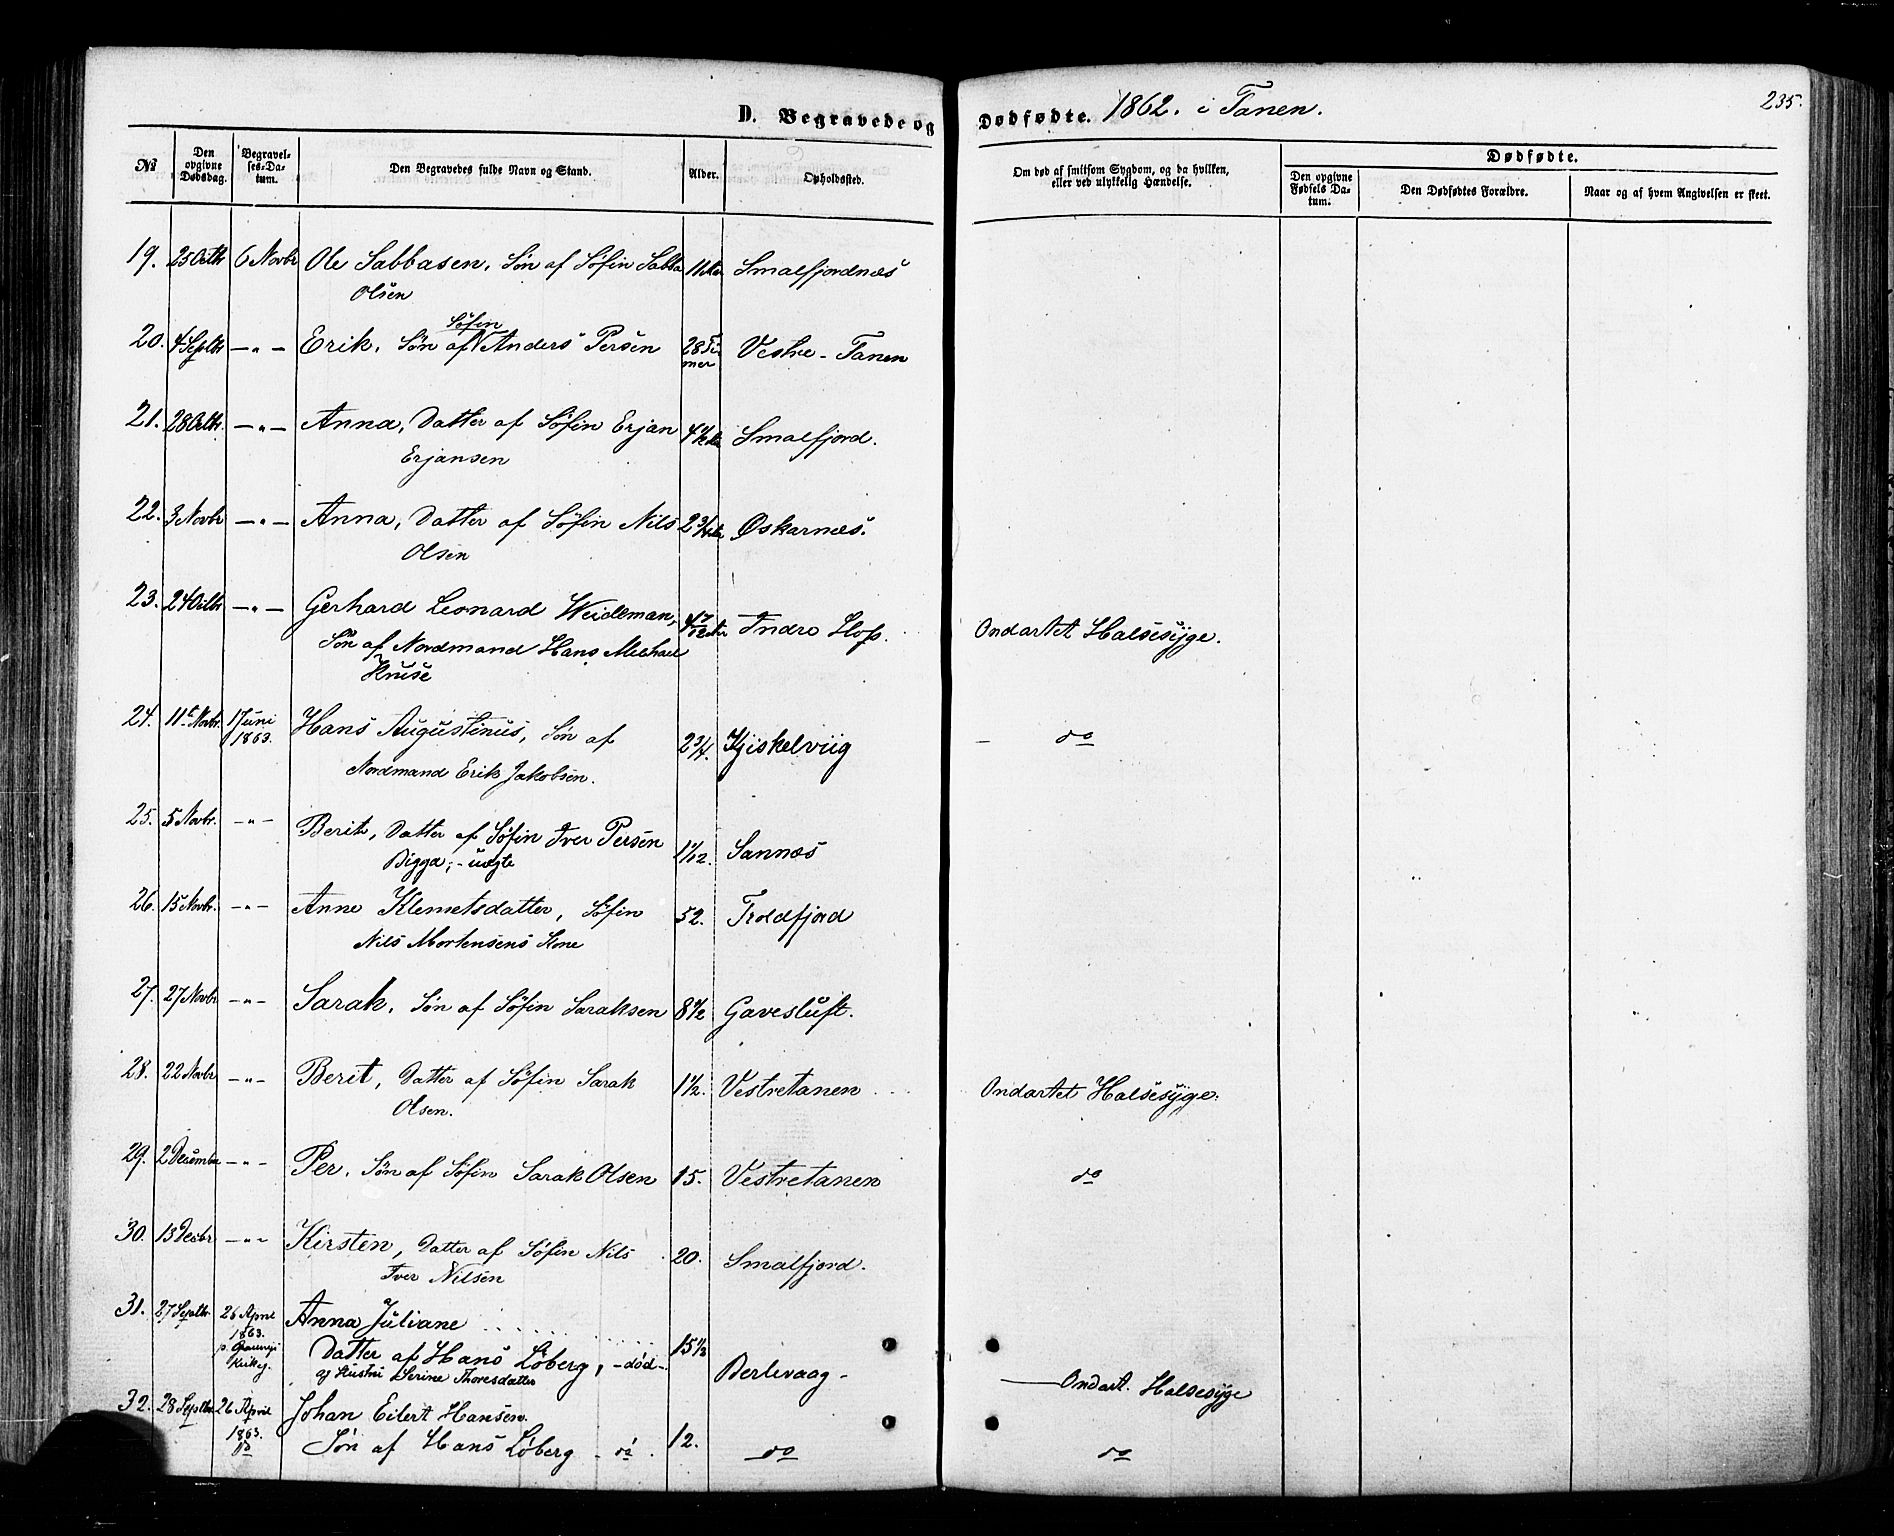 D. Begravede og Dødfødte. 1862. i Tanen. 235.
№ Den opgivne Dødsdag. Begravelses-Datum. Den Begravedes fulde Navn og Stand. Alder. Opholdssted. Om død af smitsom Sygdom, og da hvilken, eller ved ulykkelig Hændelse. Dødfødte. Den opgivne Fødsels Datum. Den Dødfødtes Forældre. Naar og af hvem Angivelsen er skeet.
19. 25 Octb 6 Novbr Ole Sabbasen, Søn af Søfin Sabba Smalfjordnæs
Olsen
Søfin
20. 4 Septbr — " — Erik, Søn af Anders Persen 28 Ti Vestre-Tanen
mer
21. 28 Octbr. — " — Anna, Datter af Søfin Erjan Smalfjord.
Erjansen
22. 3 Novbr — " — Anna, Datter af Søfin Nils 2 3/4 Øskarnæs.
Olsen
23. 24 Octbr — " — Gerhard Leonard Weideman, Indre Hop. Ondartet Halsesyge.
Søn af Nordmand Hans Michael
Kruse
24. 11te Novbr. 1 Juni Hans Augustinus, Søn af 2 3/4. Kjiskelviig — do
1863.
Nordmand Erik Jakobsen.
25. 5 Novbr. — " — Berit, Datter af Søfin Iver Persen 1 1/12. Sannæs
Bigga; - uægte
26. 15 Novbr. — " — Anne Klemetsdatter, Søfin 52. Troldfjord
Nils Mortensens Kone
27. 27 Novbr — " — Sarak, Søn af Søfin Saraksen 8 1/2 Gavesluft.
28. 22 Novbr — " — Berit, Datter af Søfin Sarak 1 1/2. Vestretanen Ondartet Halsesyge.
Olsen.
29. 2 Decembr — " — Per, Søn af Søfin Sarak Olsen 15. Vestretanen do
30. 13 Decbr — " — Kirsten, Datter af Søfin Nils 20. Smalfjord.
Iver Nilsen
31. 27 Septbr. 26 April Anna Juliane
1863.
Datter af Hans Løberg, - død -. 15 1/2 Berlevaag - — Ondart. Halsesyge
og Hustru Serine Thoresdatter
32. 28 Septbr. 26 April Johan Eilert Hansen.
1863.
do Søn af Hans Løberg - do . 12. do do